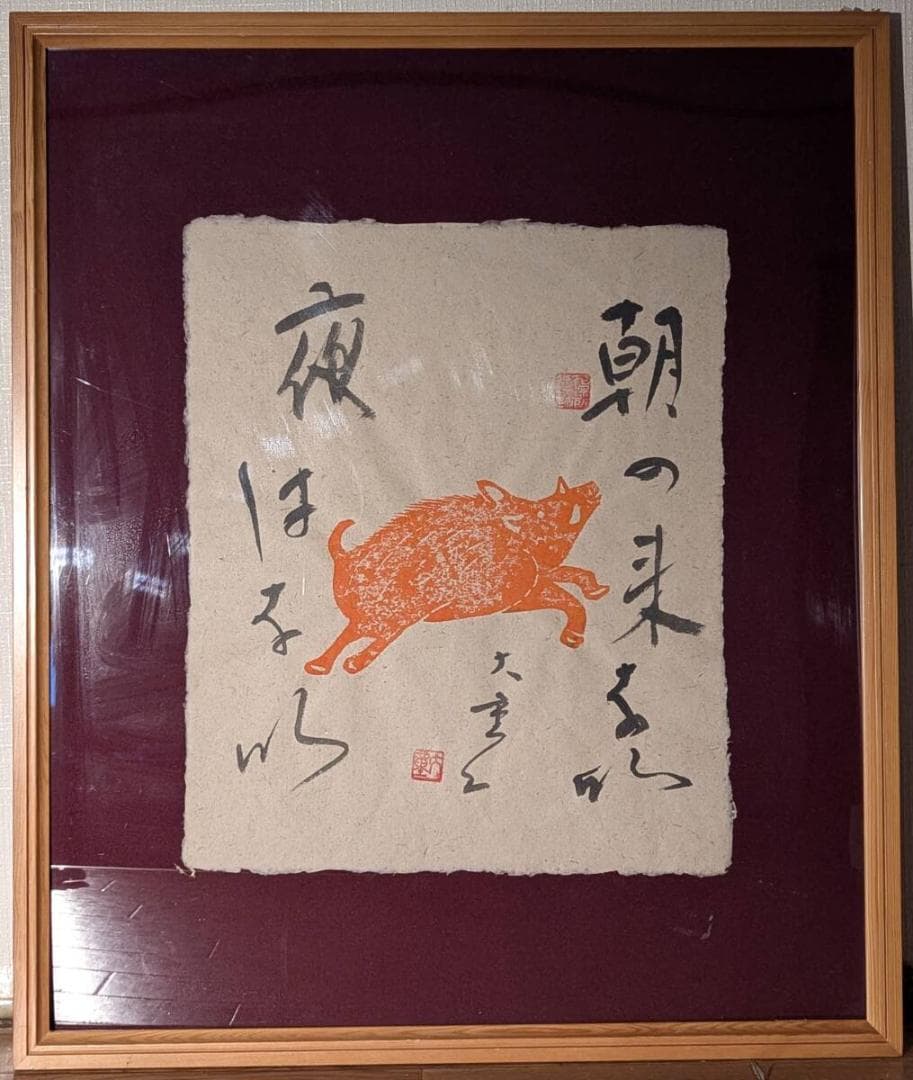 朝の来ない
夜はない